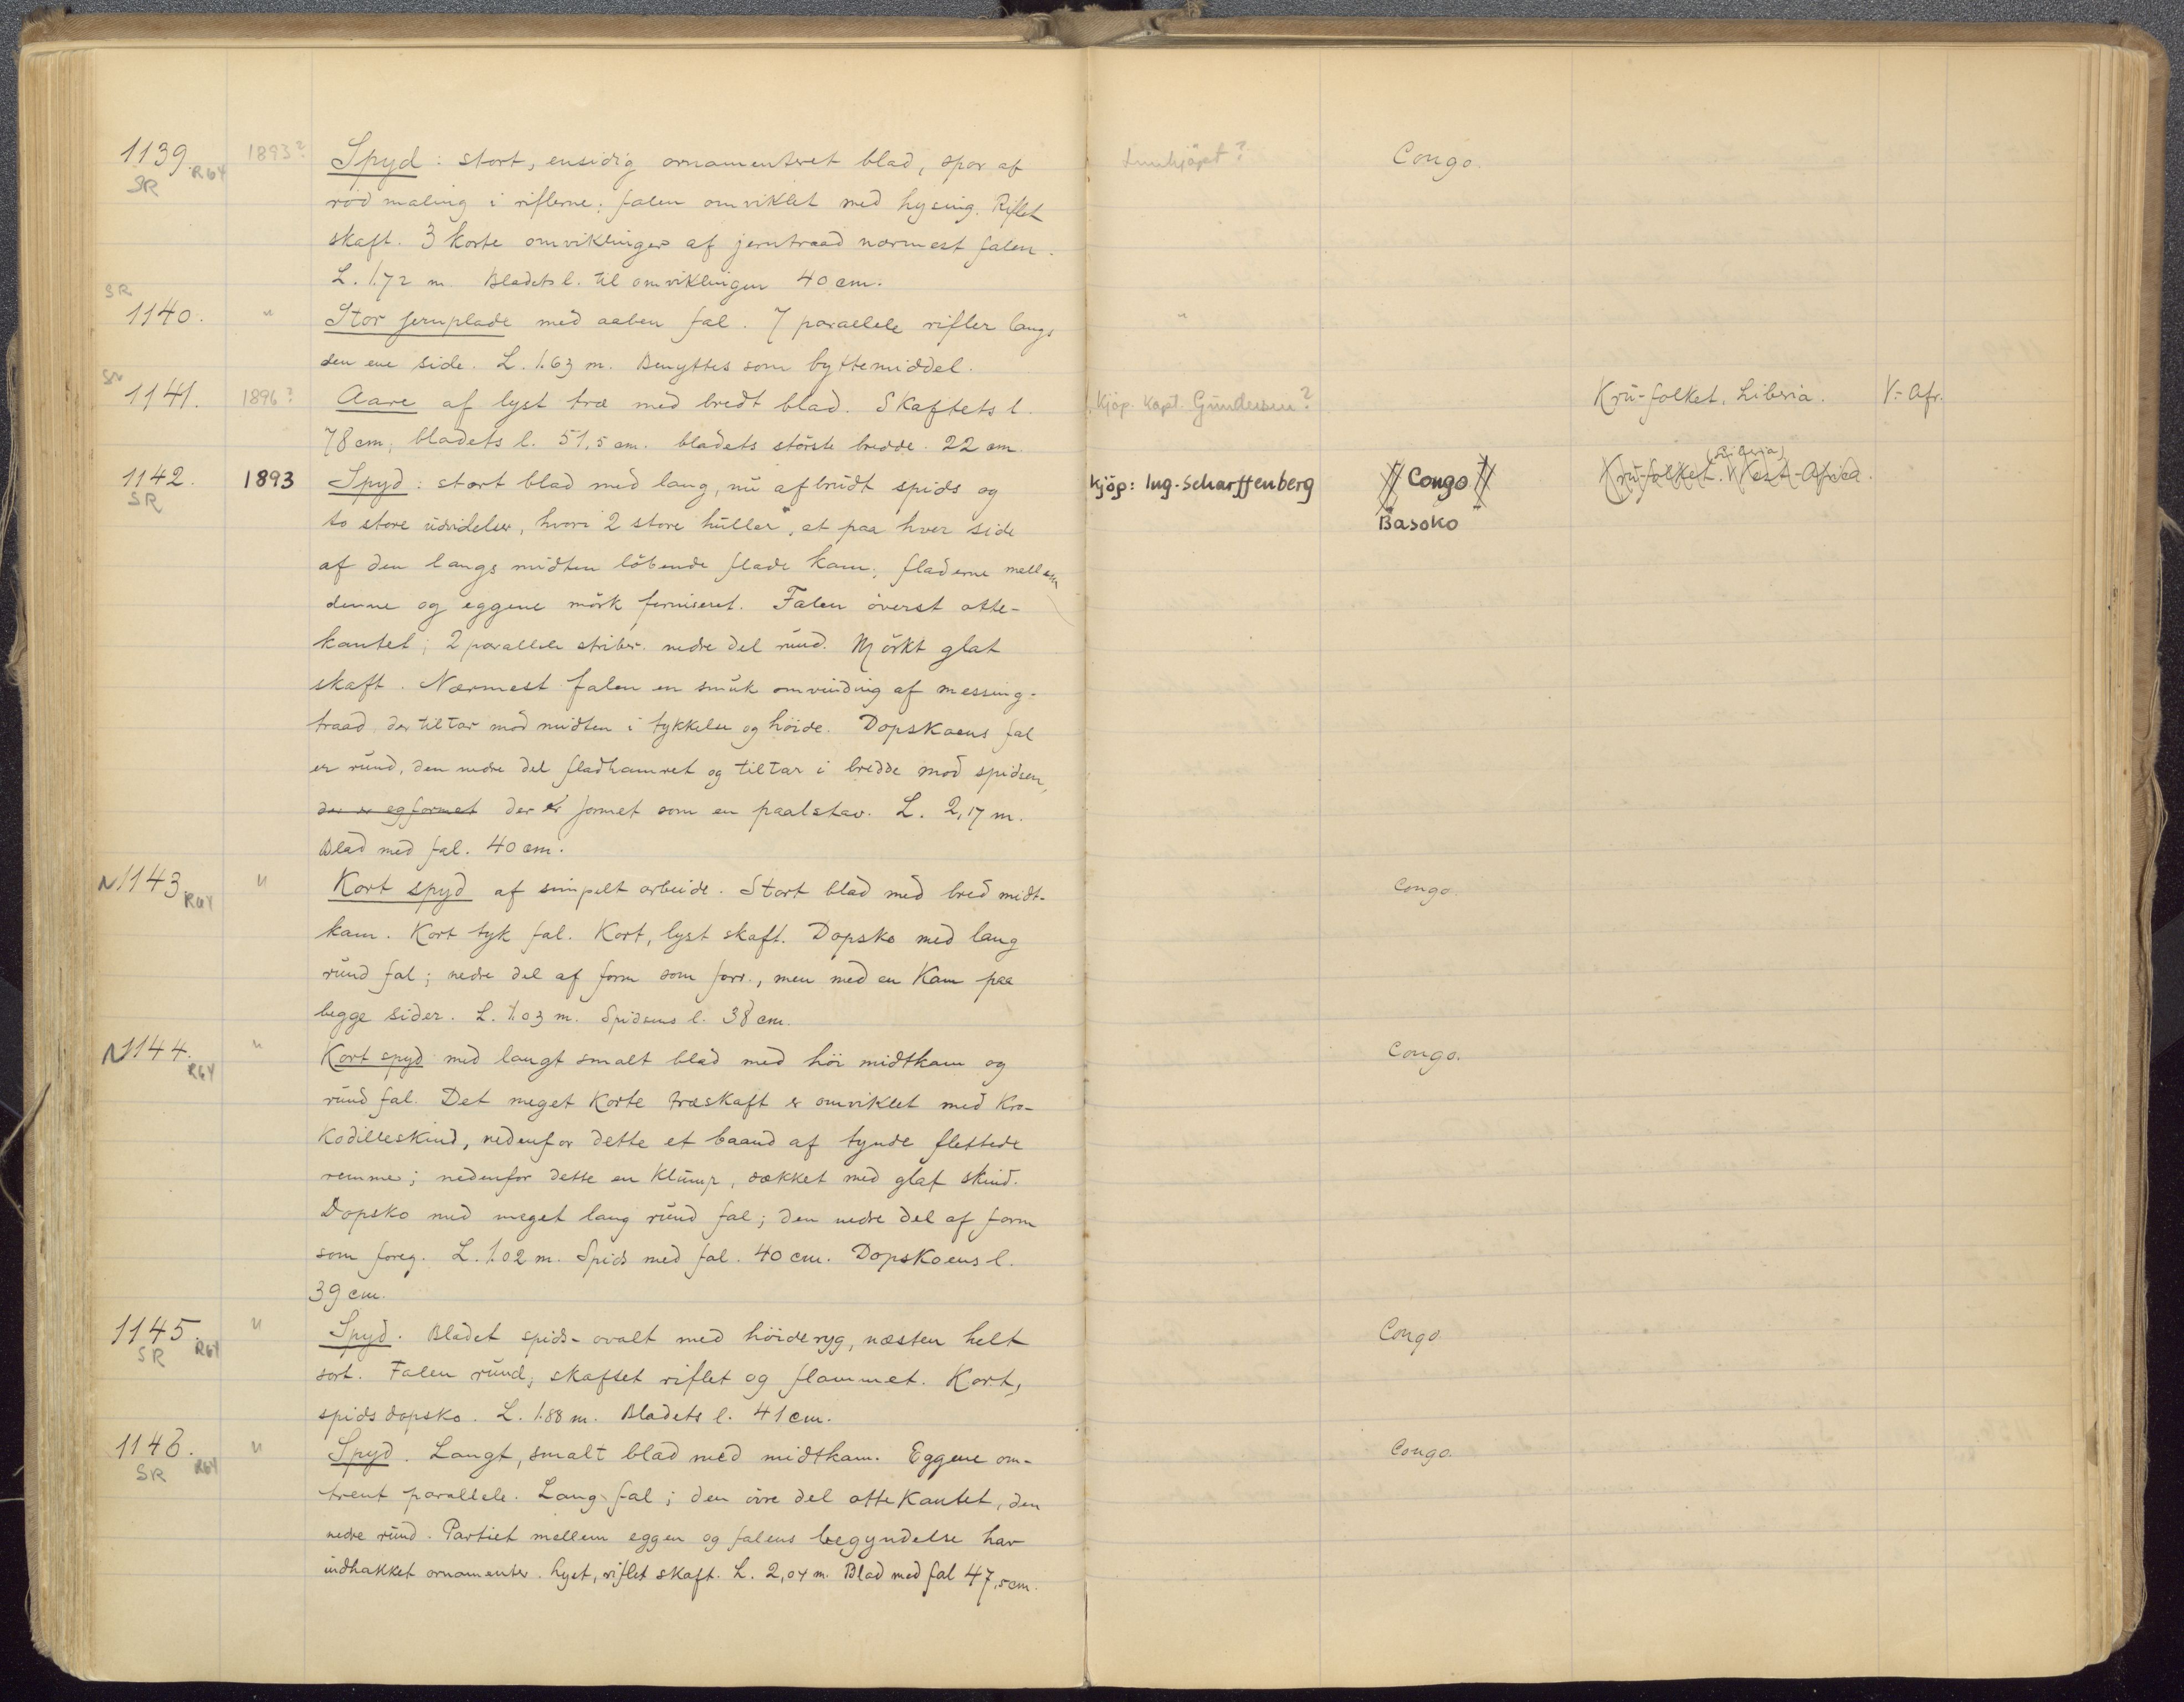 1139. 1893? Spyd: stort, ensidig ornamenteret blad, spor af Innkjöpt? Congo.
SR RGY rød maling i riflerne; falen omviklet med hysing. Riflet
skaft. 3 korte omviklinger af jerntraad nærmest falen.
L. 1.72 m. Bladets l. til omviklingen 40 cm.
SR
1140. " Stor jernplade med aaben fal. 7 paraelele rifler langs "
den ene side. L. 1.63 m. Benyttes som byttemiddel.
SR
1141. 1896? Aare af lyst træ med bredt blad. Skaftets l. Kjöp. Kapt. Gundersen? Krü-folket, Liberia. V-Afr.
78 cm, bladets l. 51,5 cm. bladets störste bredde 22 cm.
1142. 1893 Spyd: stort blad med lang, nü afbrüdt spids og Kjöp: Ing. Scharffenberg Congo Krü-folket. (Liberia) West-Africa.
SR to store üdvidelser, hvori 2 store hüller, et paa hver side Basoko
af den langs midten löbende flade kam; fladerne mellem
denne og eggene mörk ferniseret. Falen överst otte-
kantet; 2 parallele striber. nedre del ründ. Mörkt glat
skaft. Nærmest falen en smük omvinding af messing-
traad, der tiltar mod midten i tykkelse og höide. Dopskoens fal
er ründ, den nedre del fladhamret og tiltar i bredde mod spidsen,
der er egformet der er formet som en paalstav. L. 2,17 m.
Blad med fal. 40 cm.
N1143. RGY " Kort spyd af simpelt arbeide. Stort blad med bred midt- Congo.
kam. Kort tyk fal. Kort, lyst skaft. Dopsko med lang
ründ fal; nedre del af form som forr., men med en Kam paa
begge sider. L. 1.03 m. Spidsens l. 38 cm.
N1144. RGY " Kort spyd med langt smalt blad med höi midtkam og Congo.
ründ fal. Det meget korte træskaft er omviklet med Kro-
Kodilleskind, nedenfor dette et baand af tynde flettede
remme; nedenfor dette en Klümp, dækket med glat skind.
Dopsko med meget lang ründ fal; den nedre del af form
som foreg. L. 1.02 m. Spids med fal. 40 cm. Dopskoens l.
39 cm.
1145. " Spyd. Bladet spids-ovalt med höideryg, næsten helt Congo.
SR RGY sort. Falen ründ; skaftet riflet og flammet. Kort,
spids dopsko. L. 1.88 m. Bladets l. 41 cm.
1146. " Spyd. Langt, smalt blad med midtkam. Eggene om- Congo.
SR RGY trent parallele. Lang fal; den övre del ottekantet, den
nedre ründ. Partiet mellem eggen og falens begyndelse har
indhakket ornamenter. Lyst, riflet skaft. L. 2,04 m. Blad med fal 47,5 cm.